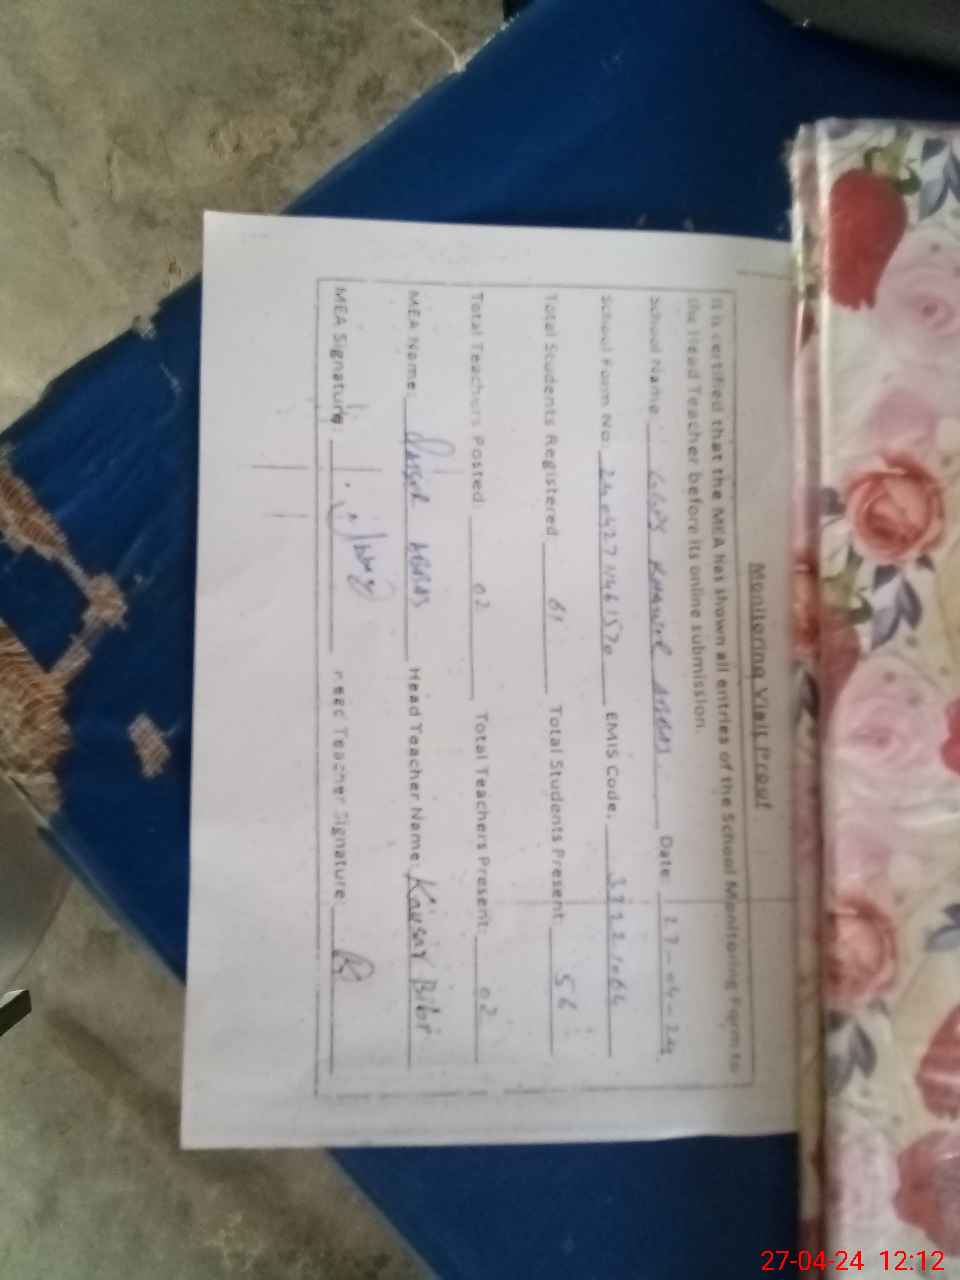 Monitoring Visit Proof
It is certified that the MEA has shown all entries of the School Monitoring Form to
the Head Teacher before its online submission.
School Name ABBAS Date: 27-04-24
School Form No: EMIS Code:
Total Students Registered 61 Total Students Present
Total Teachers Posted: 02 Total Teachers Present: 02
MEA Name: ABBAS Head Teacher Name: Kausar Bibi
MEA Signature: Head Teacher Signature:
27-04-24 12:12